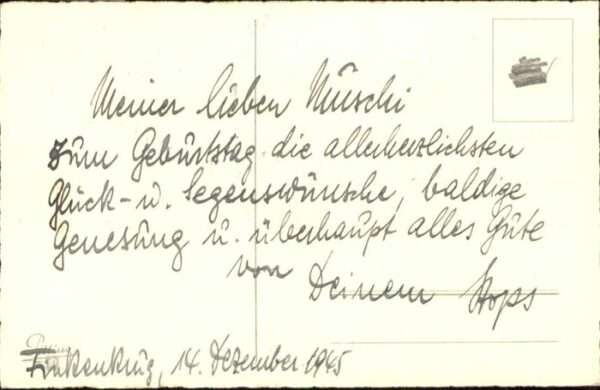 Meiner lieben Muschi
zum Geburtstag die allerherzlichsten
Glück- u. Segenswünsche, baldige
Genesung u. überhaupt alles Gute
von Deinem Hops
Finkenkrug, 14. Dezember 1945